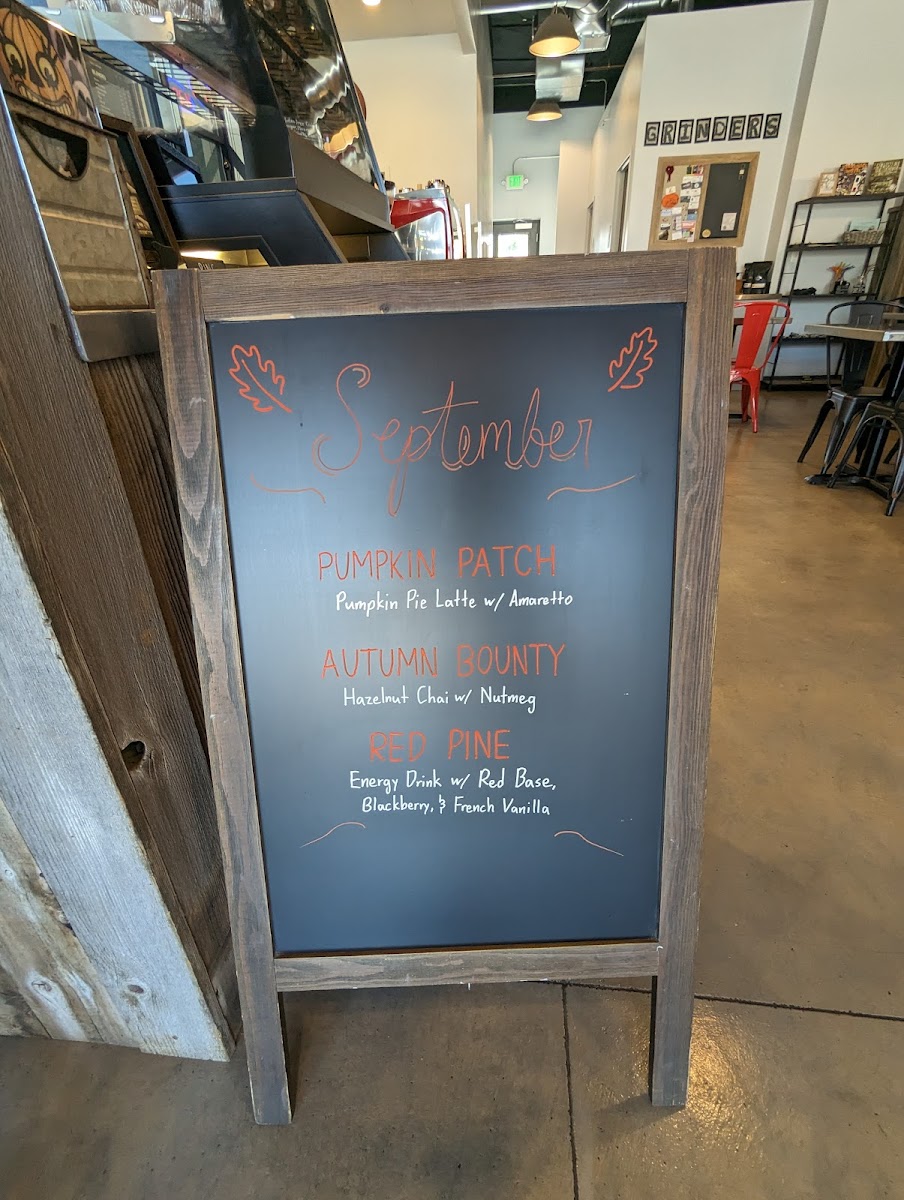 GRINDERS
September
PUMPKIN PATCH
Pumpkin Pie Latte w/ Amaretto
AUTUMN BOUNTY
Hazelnut Chai w/ Nutmeg
RED PINE
Energy Drink w/ Red Base,
Blackberry, & French Vanilla